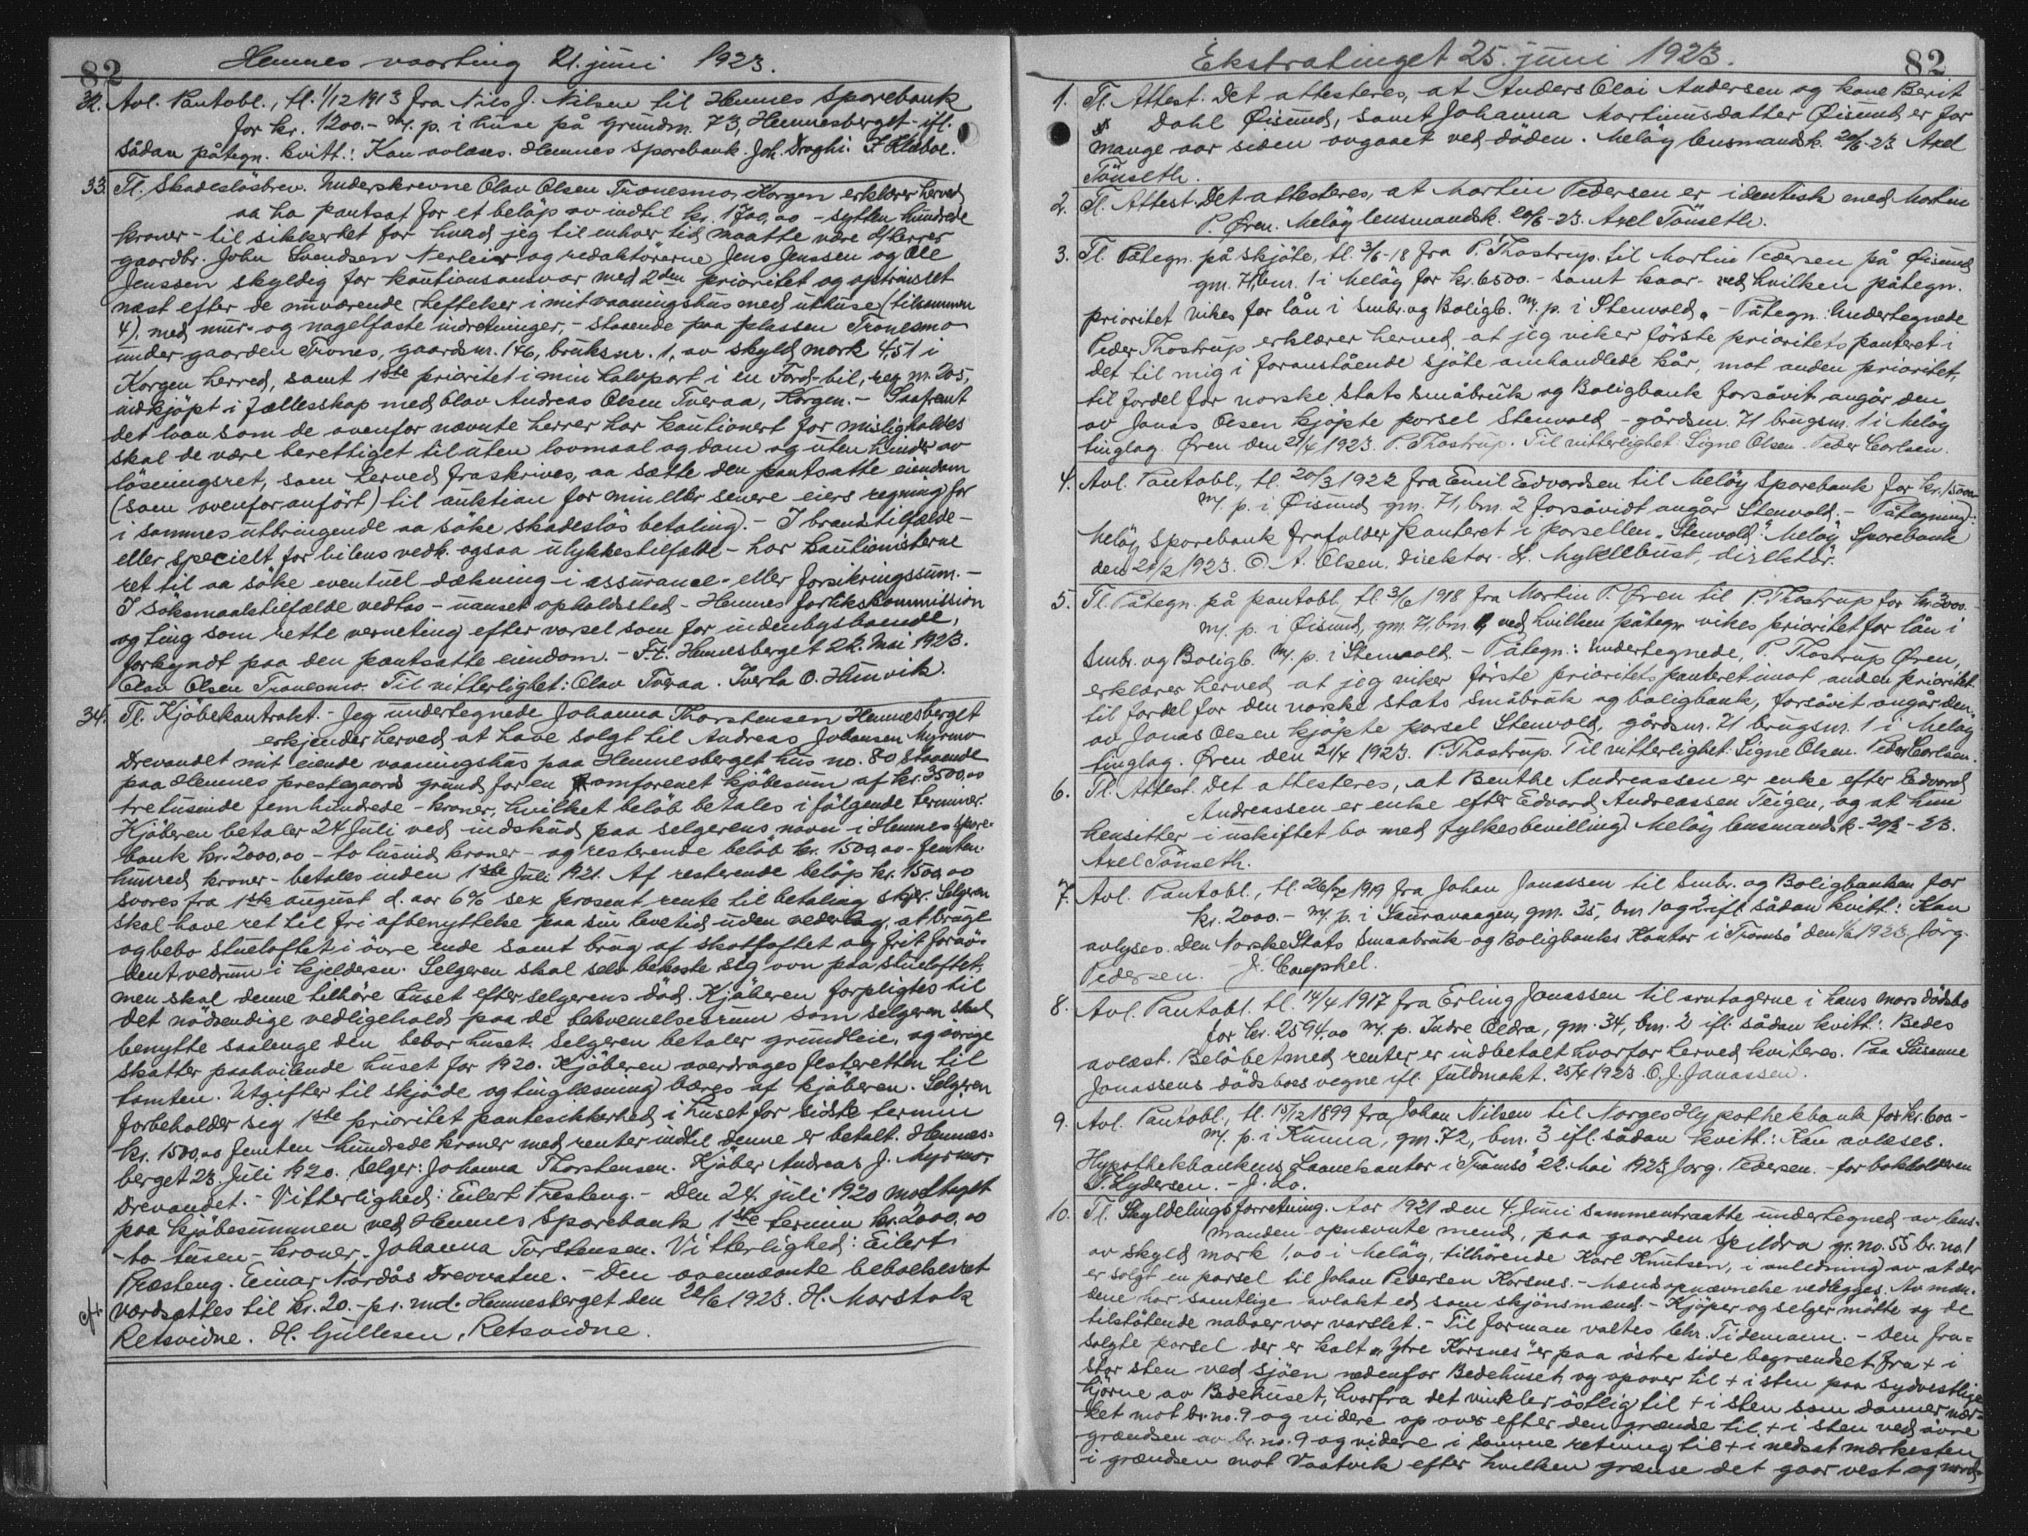 82
Hemnes vaarting 21. juni 1923.
32. Avl. Pantobl., tl. 1/12 1913 fra Nils J. Nilsen til Hemnes Sparebank
for kr. 1200.- m. p. i huse på grundnr. 73, Hemnesberget - ifl.
sådan påtegn. kvitt.: Kan avlæses. Hemnes Sparebank. Joh. Draghi.
33. Tl. Skadeslösbrev. Underskrevne Olav Olsen Tronesmo, Korgen erklærer herved
aa ha pantsat for et belöp av indtil kr. 1700,00 - sytten hundrede
kroner - til sikkerhet for hvad jeg til enhver tid maatte være d'herrer
gaardbr. John Svendsen Nerleir og redaktörerne Jens Jenssen og Ole
Jenssen skyldig for kautionsansvar med 2den prioritet og optrinsret
næst efter de nuværende heftelser i mit vaaningshus med uthuse (tilsammen
4), med mur- og nagelfaste indretninger, - staaende paa plassen Tronesmo
under gaarden Trones, gaardsnr. 146, bruksnr. 1, av skyld mark 4,51 i
Korgen herred, samt 1ste prioritet i min halvpart i en Ford-bil, reg. nr. 205,
indkjöpt i fællesskap med Olav Andreas Olsen Tveraa, Korgen. - Saafremt
det laan som de ovenfor nævnte herrer har kautionert for misligholdes
skal de være berettiget til uten lovmaal og dom og uten hinder av
löseningsret, som herved fraskrives, aa sætte den pantsatte eiendom
(som ovenfor anfört) til auktion for min eller senere eiers regning for
i sammes utbringende aa söke skadeslös betaling). - I brandstilfælde -
eller specielt for bilens vedk. ogsaa ulykkestilfælde - har kautionisterne
ret til aa söke eventuel dækning i assurance- eller forsikringssum. -
I söksmaalstilfælde vedtas - uanset opholdssted - Hemnes forlikskommission
og ting som rette verneting efter varsel som for indenbysboende,
forkyndt paa den pantsatte eiendom. - F.t. Hemnesberget 22. Mai 1923.
Olav Olsen Tronesmo. Til vitterlighet: Olav Tveraa. Sverla O. Husvik.
34. Tl. Kjöbekontrakt. - Jeg undertegnede Johanna Thorstensen Hemnesberget
erkjender herved at have solgt til Andreas Johansen Myrmo
Drevandet mit eiende vaaningshus paa Hemnesberget hus no. 80 staaende
paa Hemnes prestegaards grund for en omforenet kjöbesum af kr. 3500,00
tretusinde femhundrede - kroner, hvilket belöb betales i fölgende terminer.
Kjöberen betaler 24 Juli ved indskud paa selgerens navn i Hemnes spare-
bank kr. 2000,00 - to tusind kroner - og resterende belöb kr. 1500,00 - femten-
hundred kroner - betales inden 1ste Juli 1921. Af resterende belöp kr. 1500,00
svares fra 1ste august d. aar 6% sex prosent rente til betaling skjer. Selgeren
skal have ret til fri afbenyttelse paa sin levetid uden vederlag, at bruge
og bebo stueloftet i övre ende samt brug af skotloftet og frit fornö-
dent vedrum i kjelderen. Selgeren skal selv bekoste sig ovn paa stueloftet,
men skal denne tilhöre huset efter selgerens död. Kjöberen forpligtes til
det nödvendige vedligehold paa de bekvemelsesrum som selgeren skal
benytte saalenge den bebor huset. Selgeren betaler grundleie, og övrige
skatter paahvilende huset for 1920. Kjöberen overdrages festeretten til
tomten. Utgifter til skjöde og tinglæsning bæres af kjöberen. Selgeren
forbeholder sig 1ste prioritet pantesikkerhed i huset for sidste termin
kr. 1500,00 femten hundrede kroner med renter indtil denne er betalt. Hemnes-
berget 23. Juli 1920. Selger: Johanna Thorstensen. Kjöber Andreas J. Myrmo,
Drevandet. - Vitterlighed: Eilert Presteng. - Den 24. juli 1920 modtaget
paa kjöbesummen ved Hemnes Sparebank 1ste termin kr. 2000,00
- to tusen - kroner. Johanna Torstensen. Vitterlighed: Eilert
Præsteng. Einar Nordås Drevvatne. - Den ovennævnte beboelsesret
værdsættes til kr. 20.- pr. md. Hemnesberget den 22/6 1923. H. Marstok
Retsvidne. H. Gullesen, Retsvidne.
Ekstratinget 25. juni 1923.
82
1. Tl. Attest. Det attesteres, at Anders Olai Andersen og kone Berit
Dahl Öisund, samt Johanna Martinusdatter Öisund er for
mange aar siden avgaaet ved döden. Melöy lensmandsk. 20/6-23 Axel
Tönseth.
2. Tl. Attest. Det attesteres, at Martin Pedersen er identisk med Martin
P. Øren. Melöy lensmandsk. 20/6-23. Axel Tönseth.
3. Tl. Påtegn. på skjöte, tl. 3/6-18 fra P. Thostrup til Martin Pedersen på Öisund
gnr. 71, bnr. 1 i Melöy for kr. 6500.- samt kaar - ved hvilken påtegn.
prioritet vikes for lån i Smbr. og Boligb. m. p. i Stenvold. - Påtegn.: Undertegnede
Peder Thostrup erklærer herved, at jeg viker förste prioritets panteret i
det til mig i foranstående sjöte omhandlede kår, mot anden prioritet,
til fordel for norske stats småbruk og Boligbank forsåvit angår den
av Jonas Olsen kjöpte parsel Stenvold, - gårdsnr. 71 brugsnr. 1 i Melöy
tinglag. Øren den 21/4 1923. P. Thostrup. Til vitterlighet Signe Olsen. Peder Carlsen.
4. Avl. Pantobl., tl. 20/3 1922 fra Emil Edvardsen til Melöy Sparebank for kr. 1500.-
m. p. i Öisund gnr. 71, bnr. 2 forsåvidt angår Stenvold. - Påtegning:
Melöy Sparebank frafalder panteret i parsellen „Stenvold". Melöy Sparebank
den 21/2 1923. O. A. Olsen, direktör. Myklebust, direktör.
5. Tl. Påtegn. på pantobl., tl. 3/6 1918 fra Martin P. Øren til P. Thostrup for kr. 3000.-
m. p. i Öisund, gnr. 71, bnr. 1, ved hvilken påtegn. vikes prioritet for lån i
Smbr. og Boligb. m. p. i Stenvold. - Påtegn.: Undertegnede, P. Thostrup Øren,
erklærer herved at jeg viker förste prioritets panteret imot anden prioritet
til fordel for den norske stats småbruk og boligbank, forsåvit angår den
av Jonas Olsen kjöpte parsel Stenvold, gårdsnr. 71 brugsnr. 1 i Melöy
tinglag. Øren den 21/4 1923. P. Thostrup. Til vitterlighet Signe Olsen. Peder Carlsen.
6. Tl. Attest. Det attesteres, at Benthe Andreassen er enke efter Edvard
Andreassen er enke efter Edvard Andreassen Teigen, og at hun
hensitter i uskiftet bo med fylkesbevilling. Melöy lensmandsk. 20/2-23.
Axel Tönseth.
7. Avl. Pantobl., tl. 26/7 1919 fra Johan Jonassen til Smbr. og Boligbanken for
kr. 2000.- m. p. i Sauravaagen, gnr. 35, bnr. 1 og 2 ifl. sådan kvitt.: Kan
avlyses. Den Norske Stats Smaabruk- og Boligbanks Kontor i Tromsö den 1/6 1923. Jörg.
Pedersen. J. Camphel.
8. Avl. Pantobl. tl. 14/4 1917 fra Erling Jonassen til arvtagerne i hans mors dödsbo
for kr. 2594,00 m. p. Indre Oldra, gnr. 34, bnr. 2 ifl. sådan kvitt.: Bedes
avlæst. Belöbet med renter er indbetalt hvorfor herved kviteres. Paa Susanne
Jonassens dödsboes vegne ifl. fuldmakt. 25/4 1923. O. J. Jonassen.
9. Avl. Pantobl., tl. 15/12 1899 fra Johan Nilsen til Norges Hypothekbank for kr. 600 -
m. p. i Kunna, gnr. 72, bnr. 3 ifl. sådan kvitt.: Kan avlæses.
Hypothekbankens Laanekontor i Tromsö 22. Mai 1923. Jörg. Pedersen. - for bokholderen
P. Lydersen. -
10. Tl. Skyldelingsforretning. Aar 1921 den 4. Juni sammentraatte undertegned av lens-
manden opnævnte mend, paa gaarden Spildra gr. no. 55 br. no. 1
av skyld mark 1,00 i Melöy, tilhörende Karl Knutsen, i anledning av at der
er solgt en parsel til Johan Pedersen Korsnes. - Mandsopnævnelse vedlegges. Av mæn-
dene har samtlige avlakt ed som skjönsmænd. - Kjöper og selger mötte og de
tilstötende naboer var varslet. - Til forman valtes lehr. Tidemann. - Den fra-
solgte parsel der er kalt „Ytre Korsnes" er paa östre side begrændset fra + i
stor sten ved sjöen nedenfor Bedehuset, og opover til + i sten paa sydvestlige
hjörne av Bedehuset, hvorfra det vinkler östlig til + i sten som danner mer-
ket mot br. no. 9 og videre op over efter den grændse til + i sten ved övre
grændsen av br. no. 9 og videre i samme retning til + i nedsat mærkesten
i grændsen mot Vaatvik efter hvilken grænse det gaar vest og nord-